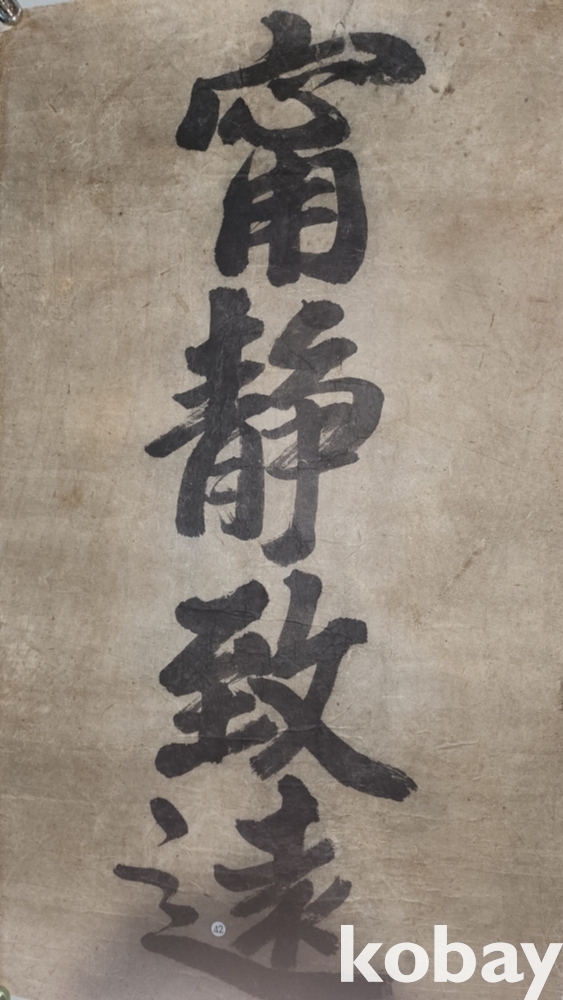 甯靜致遠
42
kobay